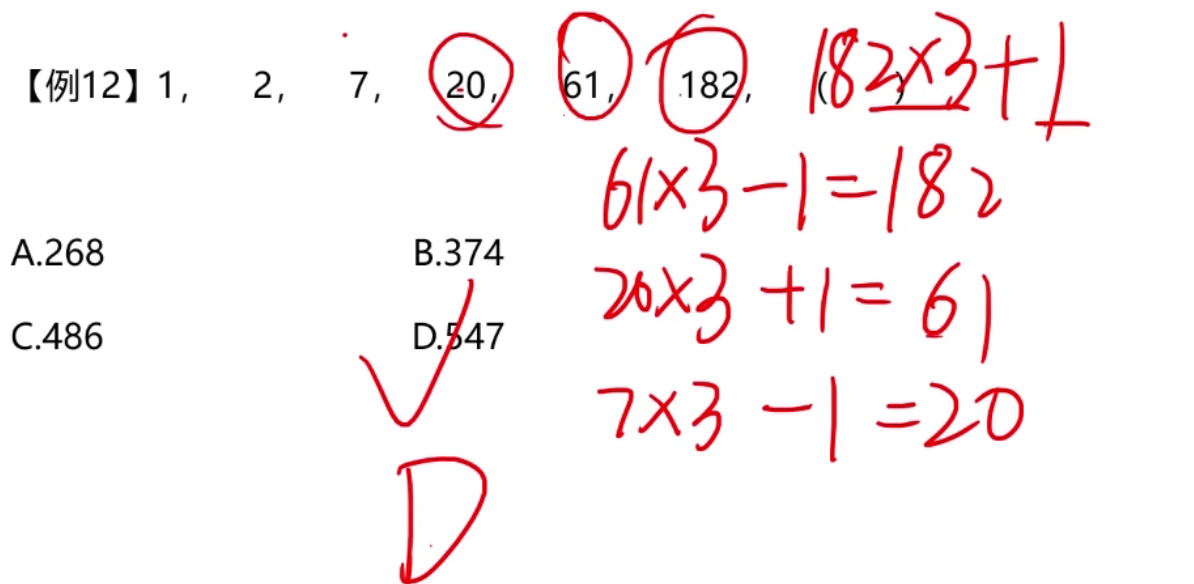 【例12】1, 2, 7, 20, 61, 182, ( )
182×3+1
61×3-1=182
20×3+1=61
7×3-1=20
A.268 B.374
C.486 D.547
D